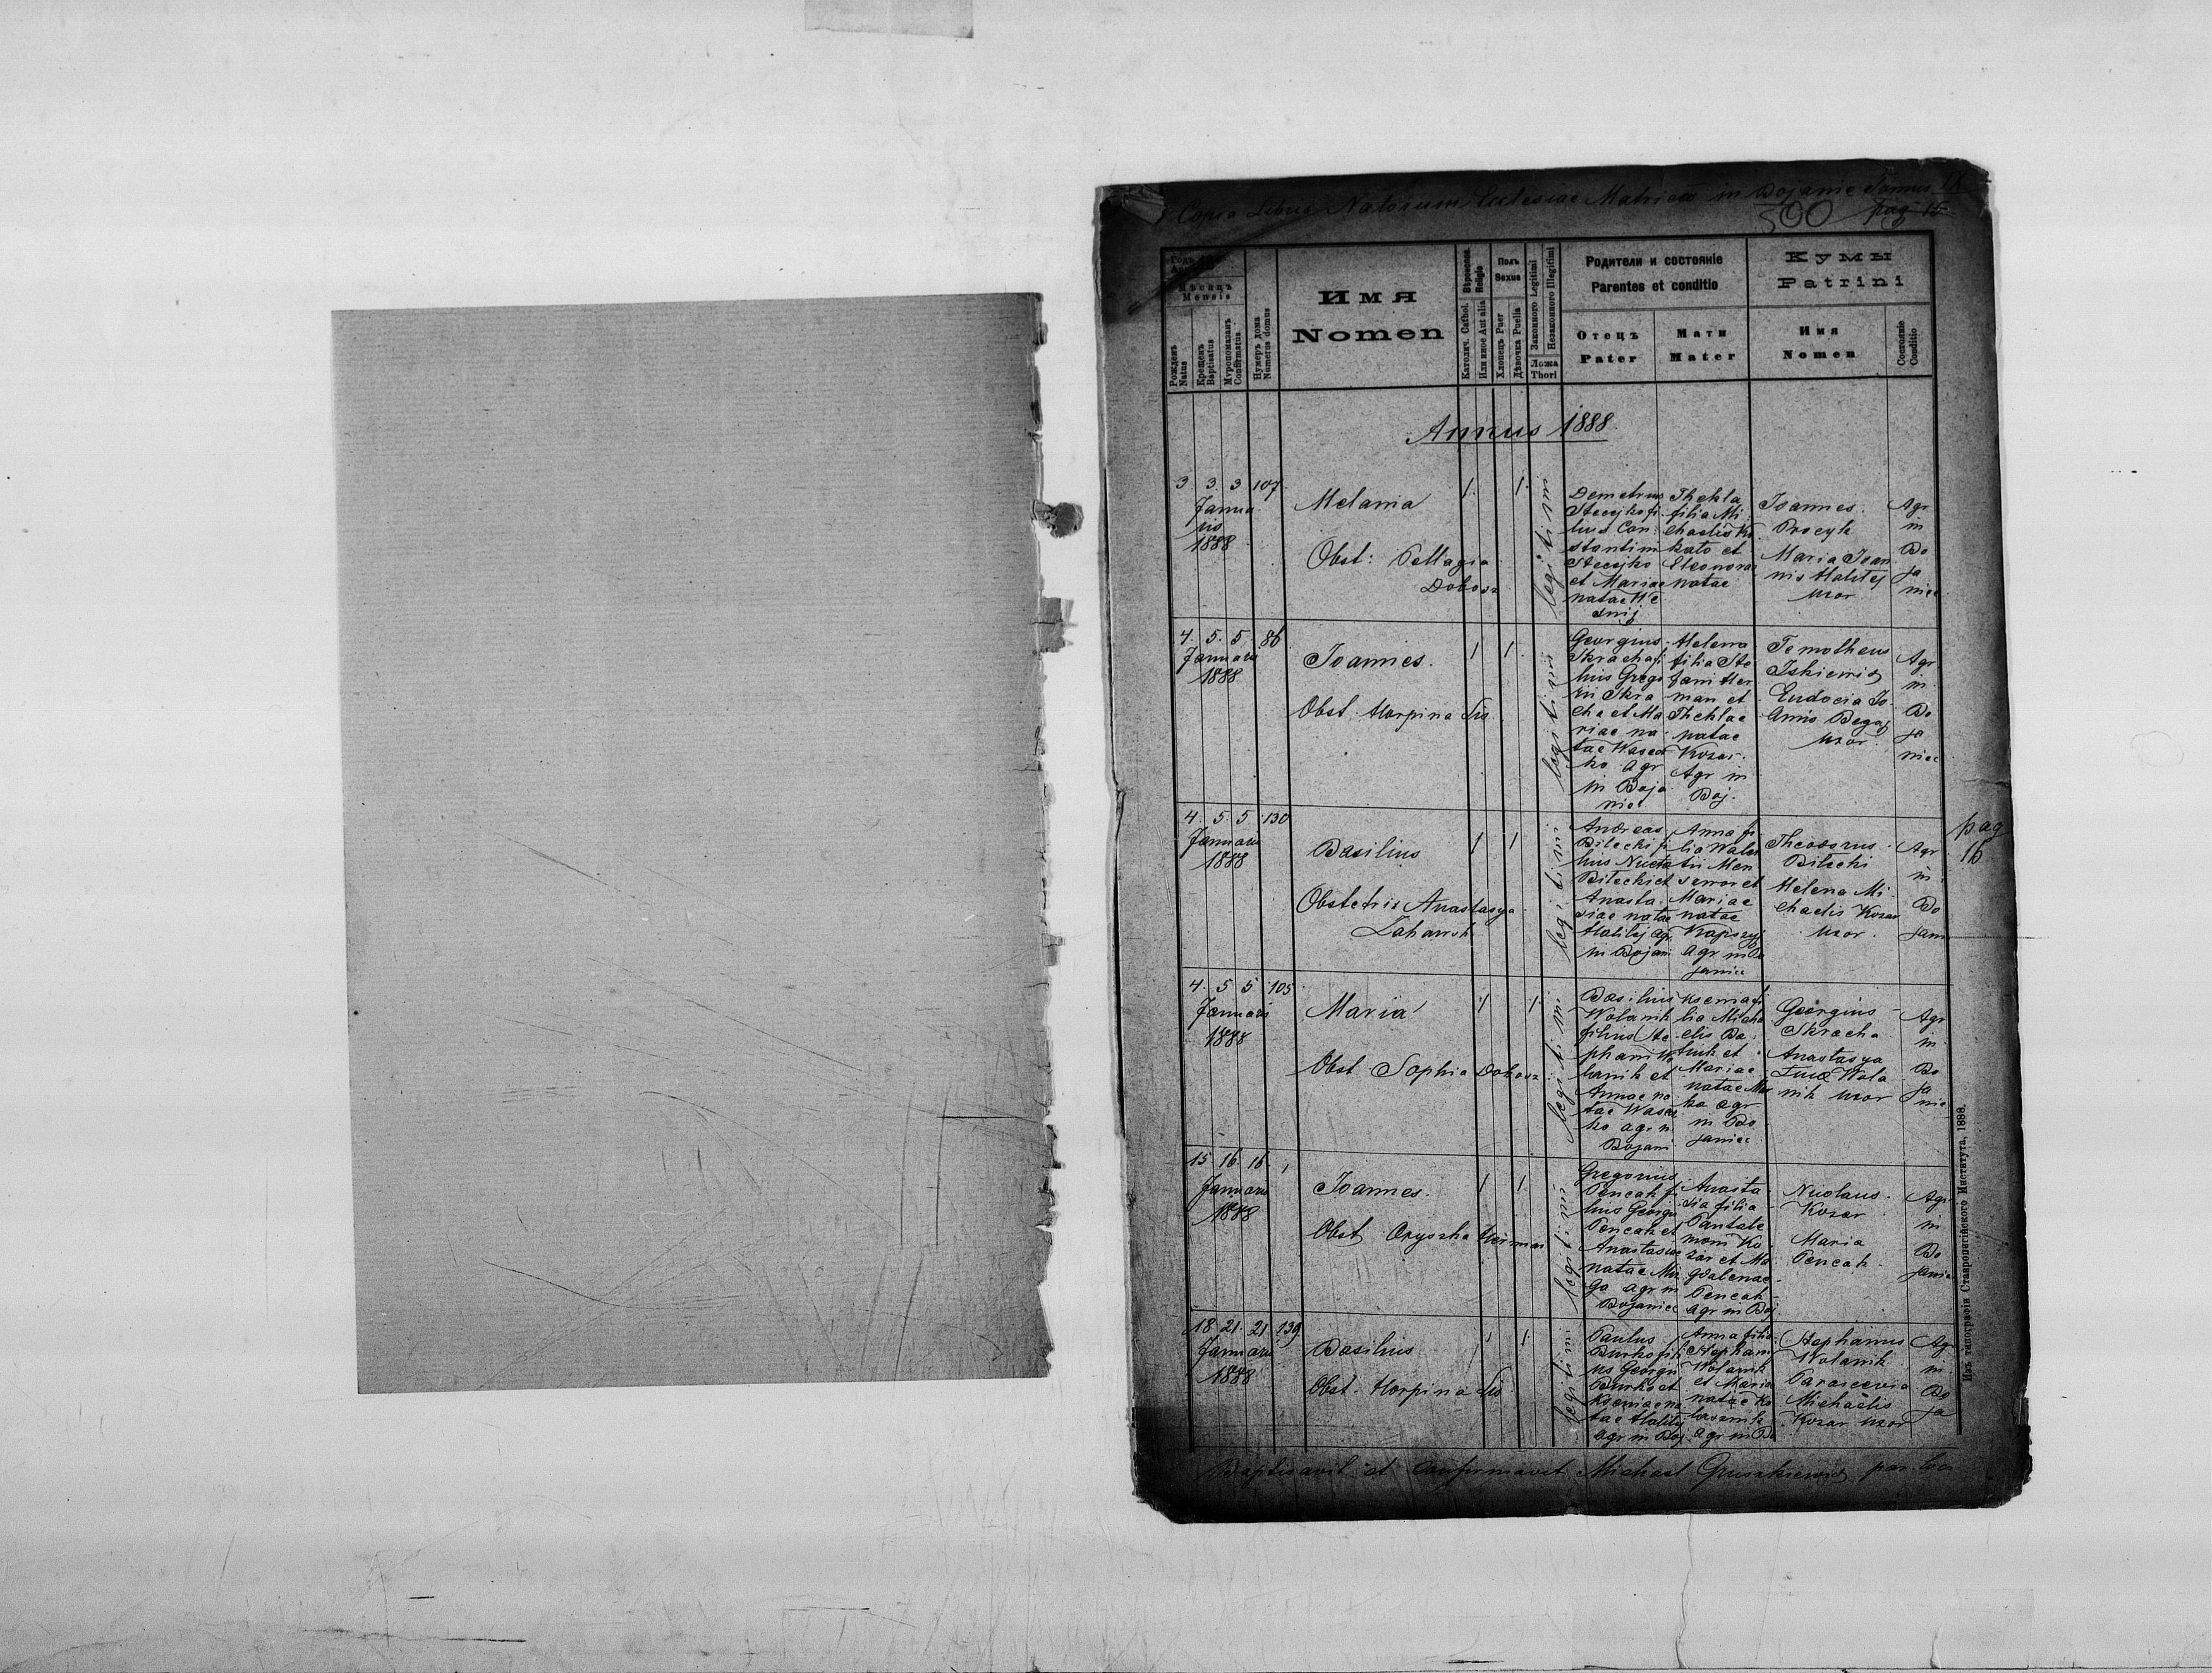 Copia Libri Natorum Ecclesiae Matricis in Bojanic Tomus IX
500 pag 15
Годъ
Мѣсяць
Mensis
Рожденъ
Natus
Крещенъ
Baptisatus
Мѵропомазанъ
Confirmatus
Нумеръ дома
Numerus domus
Имя
Nomen
Вѣроисповѣд.
Religio
Католич. Cathol.
Или иное Aut alia
Полъ
Sexus
Хлопець Puer
Дѣвочка Puella
Законного Legitimi
Незаконного Illegitimi
Ложа
Thori
Родители и состояніе
Parentes et conditio
Отецъ
Pater
Мати
Mater
Кумы
Patrini
Имя
Nomen
Состояніе
Conditio
Annus 1888.
3. 3. 3 107
Janua
ris
1888
Melania
Obst: Pellagia
Dokosz
1. 1.
legitimi
Demetrius
Stecejko fi
lius Con
stantini
Stecejko
et Mariae
natae We
dnij
Thekla
filia Mi
chaelis Ko
kato et
Eleonorae
natae
Joannes
Procyk
Maria Joan
nis Halitej
uxor
Agr
in
Bo
ja
niec
4. 5. 5. 86
Januarii
1888
Joannes.
Obst. Horpina Lis
1 1.
legitimi
Georgius
Skracha fi
lius Grego
rii Skra
cha et Ma
riae na
tae Wasecz
ko Agr
in Boja
niec
Helena
filia Ste
fani Her
man et
Theklae
natae
Kozar.
Agr in
Boj.
Temotheus
Iskiewicz
Eudocia Jo
annis Begaj
uxor.
Agr
in
Bo
ja
niec
4. 5. 5 130
Januarii
1888
Basilius
Obstetrix Anastasya
Zaharsk
1 1
legitimi
Andreas
Bilecki fi
lius Nicetae
Bilecki et
Anasta
siae natae
Halitej agr
in Bojani
Anna fi
lia Wale
rii Men
servor et
Mariae
natae
Kapszyj
agr in Bo
janiec
Theodorus
Bilecki
Helena Mi
chaelis Kozar
uxor.
Agr
in
Bo
jani
pag
16
4. 5 5 105
Januarii
1888
Maria
Obst Sophia Dokosz
1 1
legitimi
Basilius
Wolanik
filius Ste
phani Wo
lanik et
Annae na
tae Wasecz
ko agr in
Bojani
Ksenia fi
lia Micha
elis Ba
luk et
Mariae
natae
ko agr
in Bo
janiec
Georgius
Skracha
Anastasya
Lucae Wola
nik uxor
Agr
in
Bo
ja
nie
15. 16. 16. 1
Januarii
1888
Joannes.
Obst Oryszka Herman
1 1
legitimi
Gregorius
Pencak fi
lius Georgii
Pencak et
Anastasiae
natae Miz
ga agr in
Bojaniec
Anasta
sia filia
Pantale
moni Ko
zar et Ma
gdalenae
Pencak
agr in Boj
Nicolaus
Kozar
Maria
Pencak
Agr
in
Bo
janie
18. 21. 21 139
Januarii
1888
Basilius
Obst. Horpina Lis
1 1
legitimi
Paulus
Burko fili
us Georgii
Burko et
Kseniae na
tae Halitej
agr in Boj
Anna filia
Stephani
Wolanik
et Mariae
natae Ko
agr in Bo
Stephanus
Wolanik
Parascevia
Michaelis
Kozar uxor
Agr
in
Bo
ja
Baptisavit et Confirmavit Michael Gruszkiewicz par. loci
Изъ типографіи Ставропигійского Института, 1888.